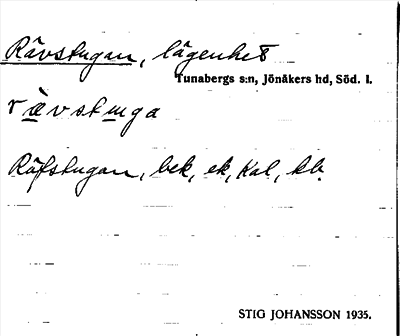 Rävstugan, lägenhet
Tunabergs s:n, Jönåkers hd, Söd. l.
rävstuga
Räfstugan, bek, ek, Kal, kb.
STIG JOHANSSON 1935.